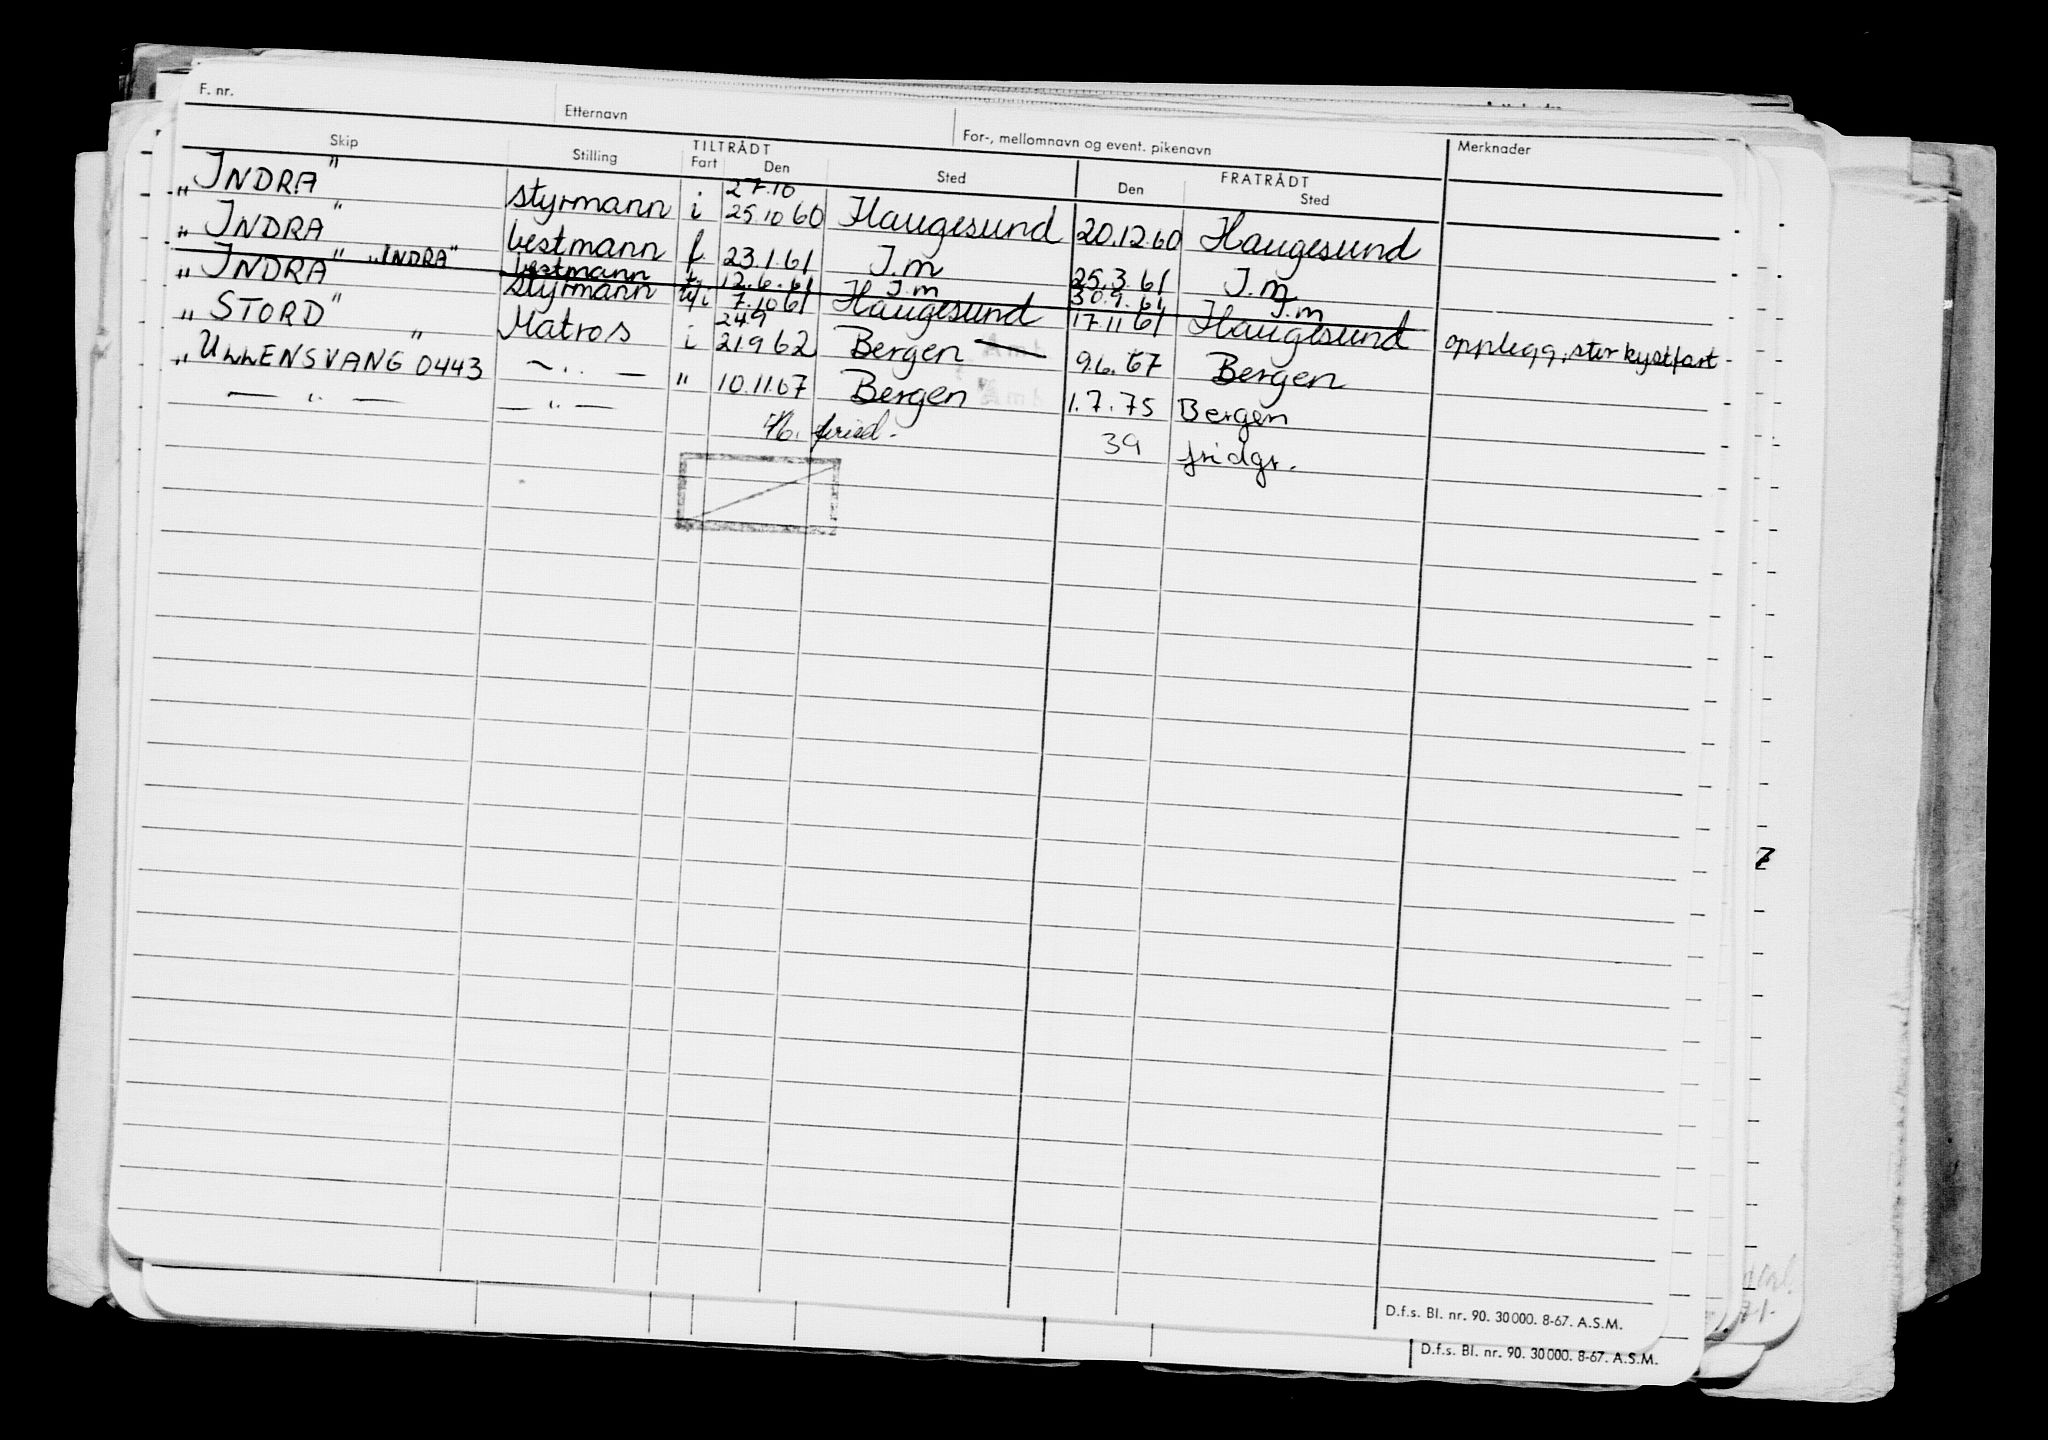 F. nr. Etternavn For-, mellomnavn og event. pikenavn Merknader
Skip Stilling TILTRÅDT Fart Den Sted FRATRÅDT Den Sted
27.10
„INDRA" styrmann i 25.10 60 Haugesund 20.12.60 Haugesund
„INDRA" bestmann f. 23.1.61 I.m 25.3.61 I.m
„INDRA" bestmann 12.6.61 I.m 30.9.61 I.m
„INDRA" styrmann 7.10 61 Haugesund 17.11 61 Haugesund opplegg, stor kystfart
24.9
„STORD" Matros i 21.9 62 Bergen 9.6.67 Bergen
„ULLENSVANG" 0443 — „ — " 10.11.67 Bergen 1.7.75 Bergen
— „ — — „ — 39 fridgr.
D.f.s. Bl. nr. 90. 30 000. 8-67. A.S.M.
D.f.s. Bl. nr. 90. 30 000. 8-67. A.S.M.